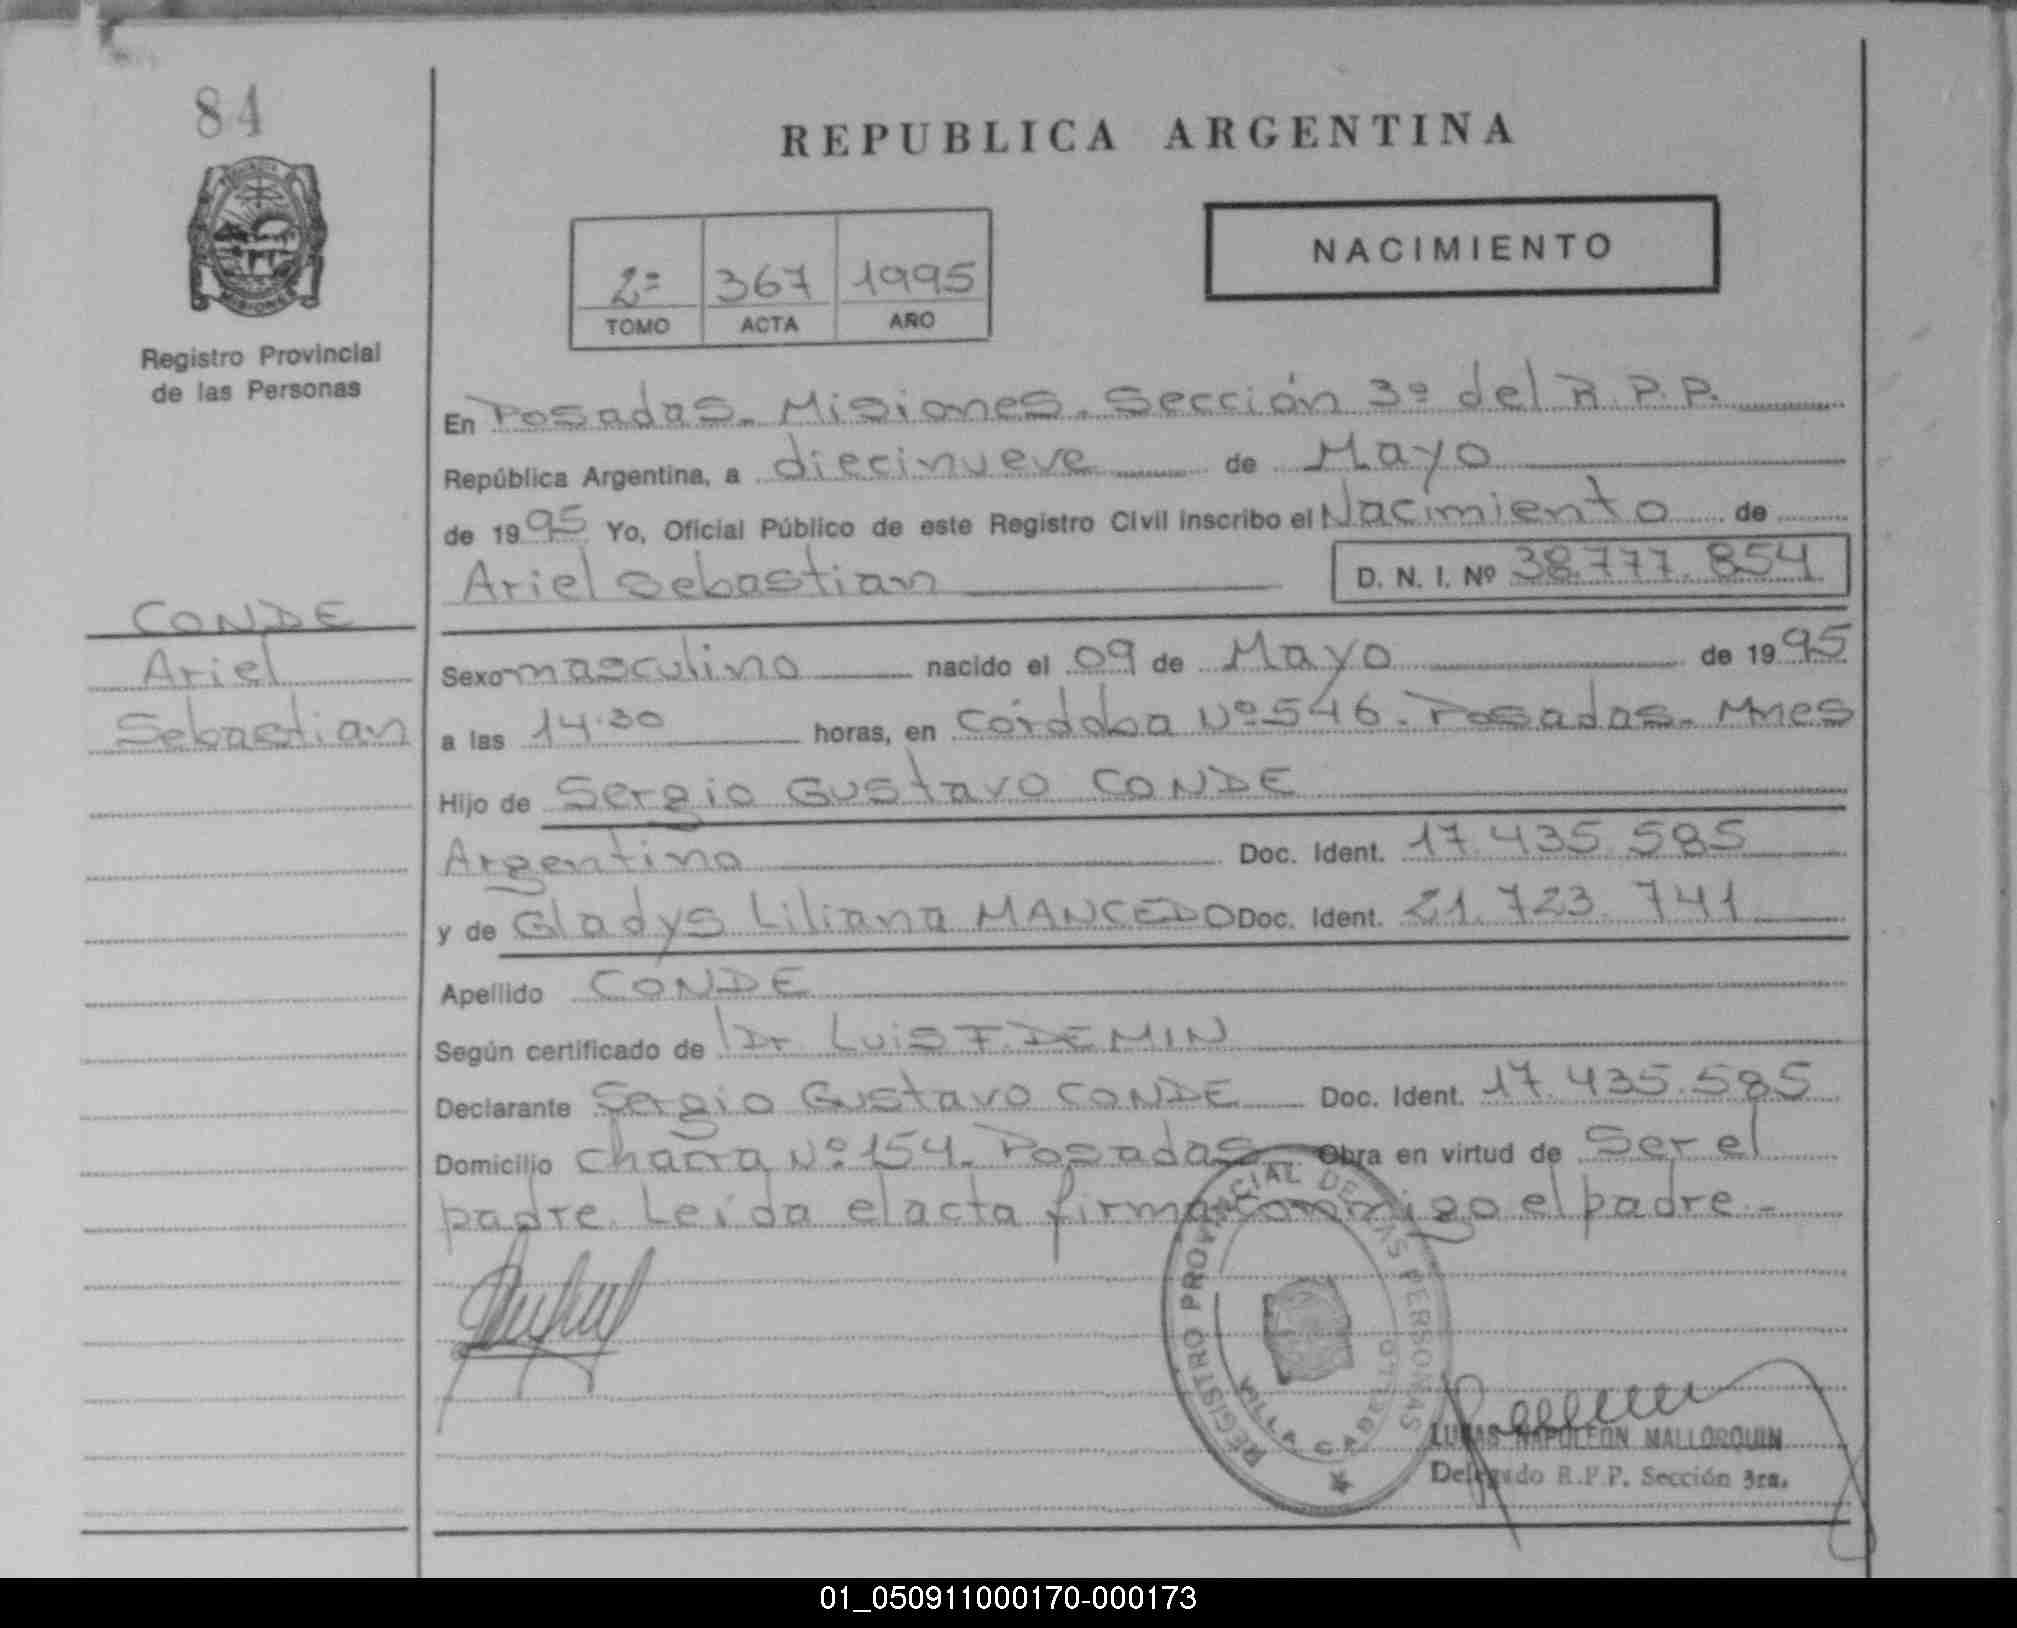 84
REPUBLICA ARGENTINA
NACIMIENTO
2º 367 1995
TOMO ACTA AÑO
MISIONES
Registro Provincial
de las Personas
En Posadas - Misiones - Sección 3º del R.P.P.
República Argentina, a diecinueve de Mayo
de 1995 Yo, Oficial Público de este Registro Civil inscribo el Nacimiento de
Ariel Sebastian D. N. I. Nº 38.777.854
CONDE
Ariel
Sebastian
Sexo masculino nacido el 09 de Mayo de 1995
a las 14.30 horas, en Córdoba Nº 546 - Posadas - Mnes
Hijo de Sergio Gustavo CONDE
Argentino Doc. Ident. 17.435.585
y de Gladys Liliana MANCEDO Doc. Ident. 21.723.741
Apellido CONDE
Según certificado de Dr Luis F. DEMIN
Declarante Sergio Gustavo CONDE Doc. Ident. 17.435.585
Domicilio chacra Nº 154 - Posadas Obra en virtud de Ser el
padre. Leída el acta firma conmigo el padre -
REGISTRO PROVINCIAL DE LAS PERSONAS
VILLA CABELLO
LUCAS NAPOLEON MALLORQUIN
Delegado R.P.P. Sección 3ra.
01_050911000170-000173